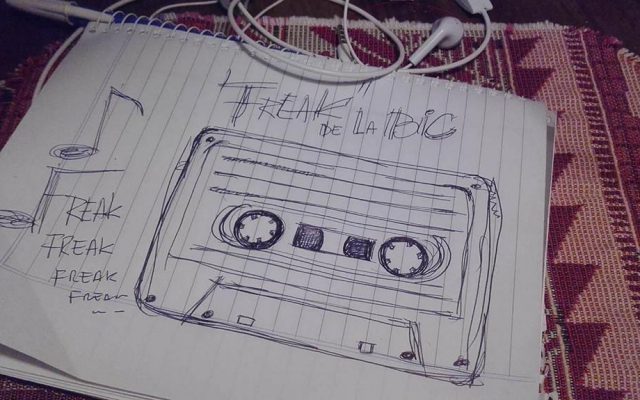 "FREAK"
DE LA BIC
REAK
FREAK
FREAK
FREAK